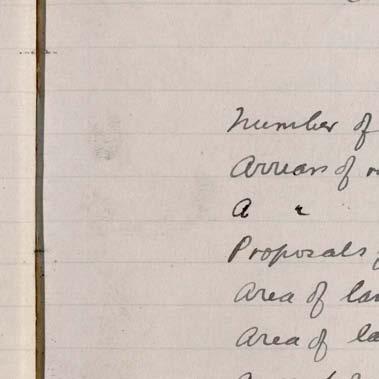 Number of
Arrears of
A "
Proposals
Area of lan
Area of la